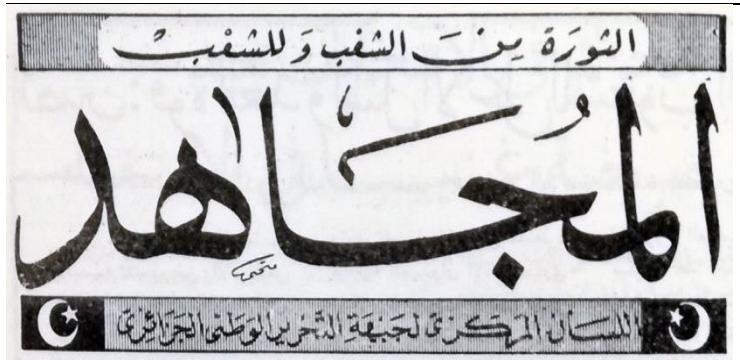 الثورَة مِنَ الشعْب وَ للشعْبْ
المُجَاهد
اللسان المركزي لجبهة التحرير الوطني الجزائري